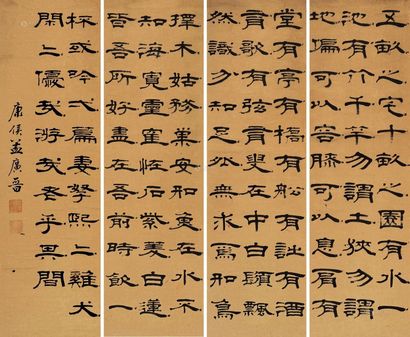 五畝之宅十畝之園有水一
池有竹千竿勿謂土狹勿謂
地偏可以容膝可以息肩有
堂有亭有橋有船有詩有酒
有歌有弦有叟在中白鬚飄
然識分知足外無求焉如鳥
擇木姑務巢安如龜在水不
知海寬靈鶴怪石紫菱白蓮
皆吾所好盡在吾前時飲一
杯或吟一篇妻孥熙〻雞犬
閑〻優哉游哉老乎其間
康侯孟廣晉